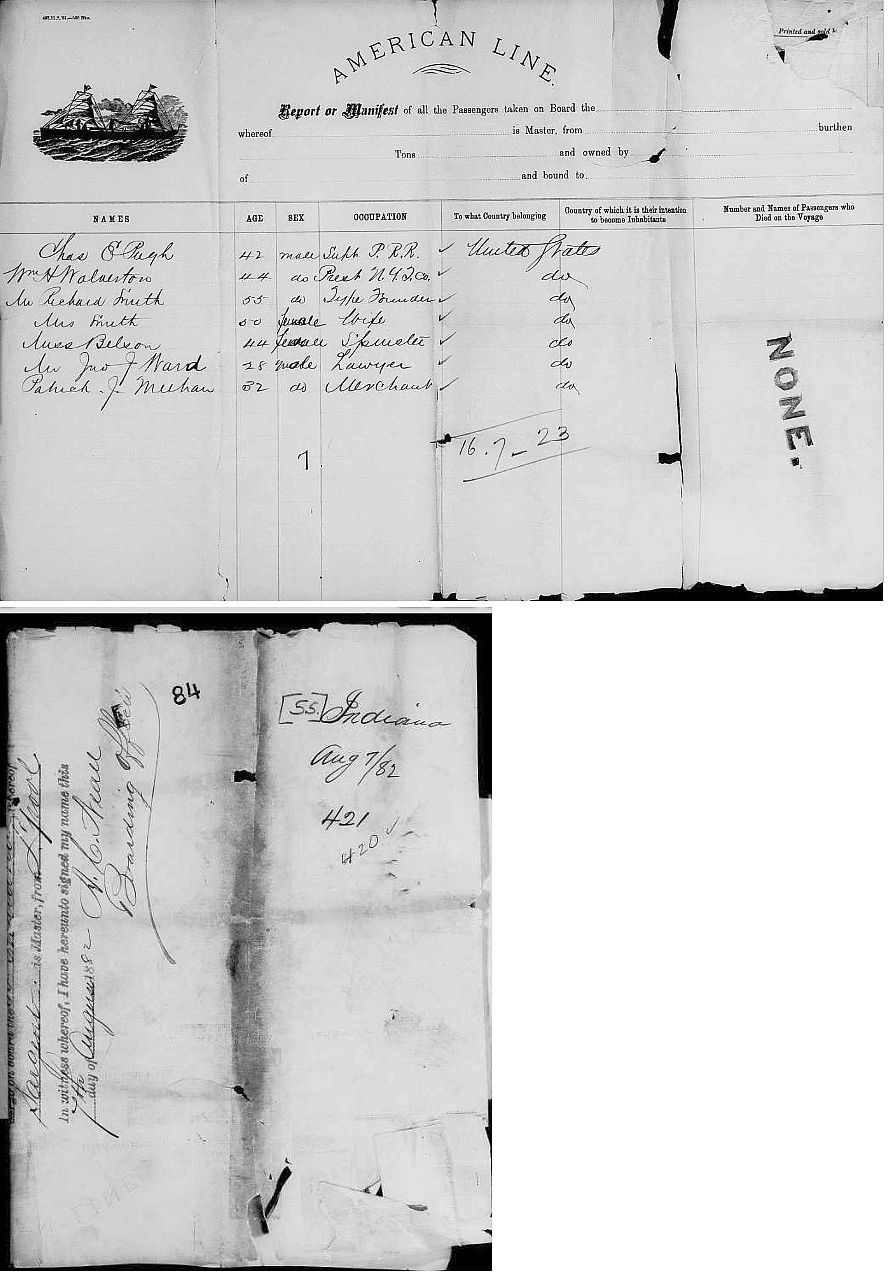 Printed and sold
AMERICAN LINE.
Report or Manifest of all the Passengers taken on Board the
whereof is Master, from burthen
Tons and owned by
of and bound to
NAMES AGE SEX OCCUPATION To what Country belonging Country of which it is their intention to become Inhabitants Number and Names of Passengers who Died on the Voyage
Chas E Pugh 42 male Supt P. R.R. ✓ United States
Wm H Wolverton 44 do Prest N.Y. Co. ✓ do
Mr Richard Smith 55 do Type Founder ✓ do
Mrs Smith 50 female Wife ✓ do
Miss Belson 44 female Spinster ✓ do
Mr Jno J Ward 28 male Lawyer ✓ do
Patrick J. Meehan 32 do Merchant ✓ do
NONE.
7
16.7-23
84
[SS.] Indiana
Aug 7/82
421
420 ✓
Sargent is Master, from L'pool
In witness whereof, I have hereunto signed my name this
7th day of August 1882
Boarding Officer